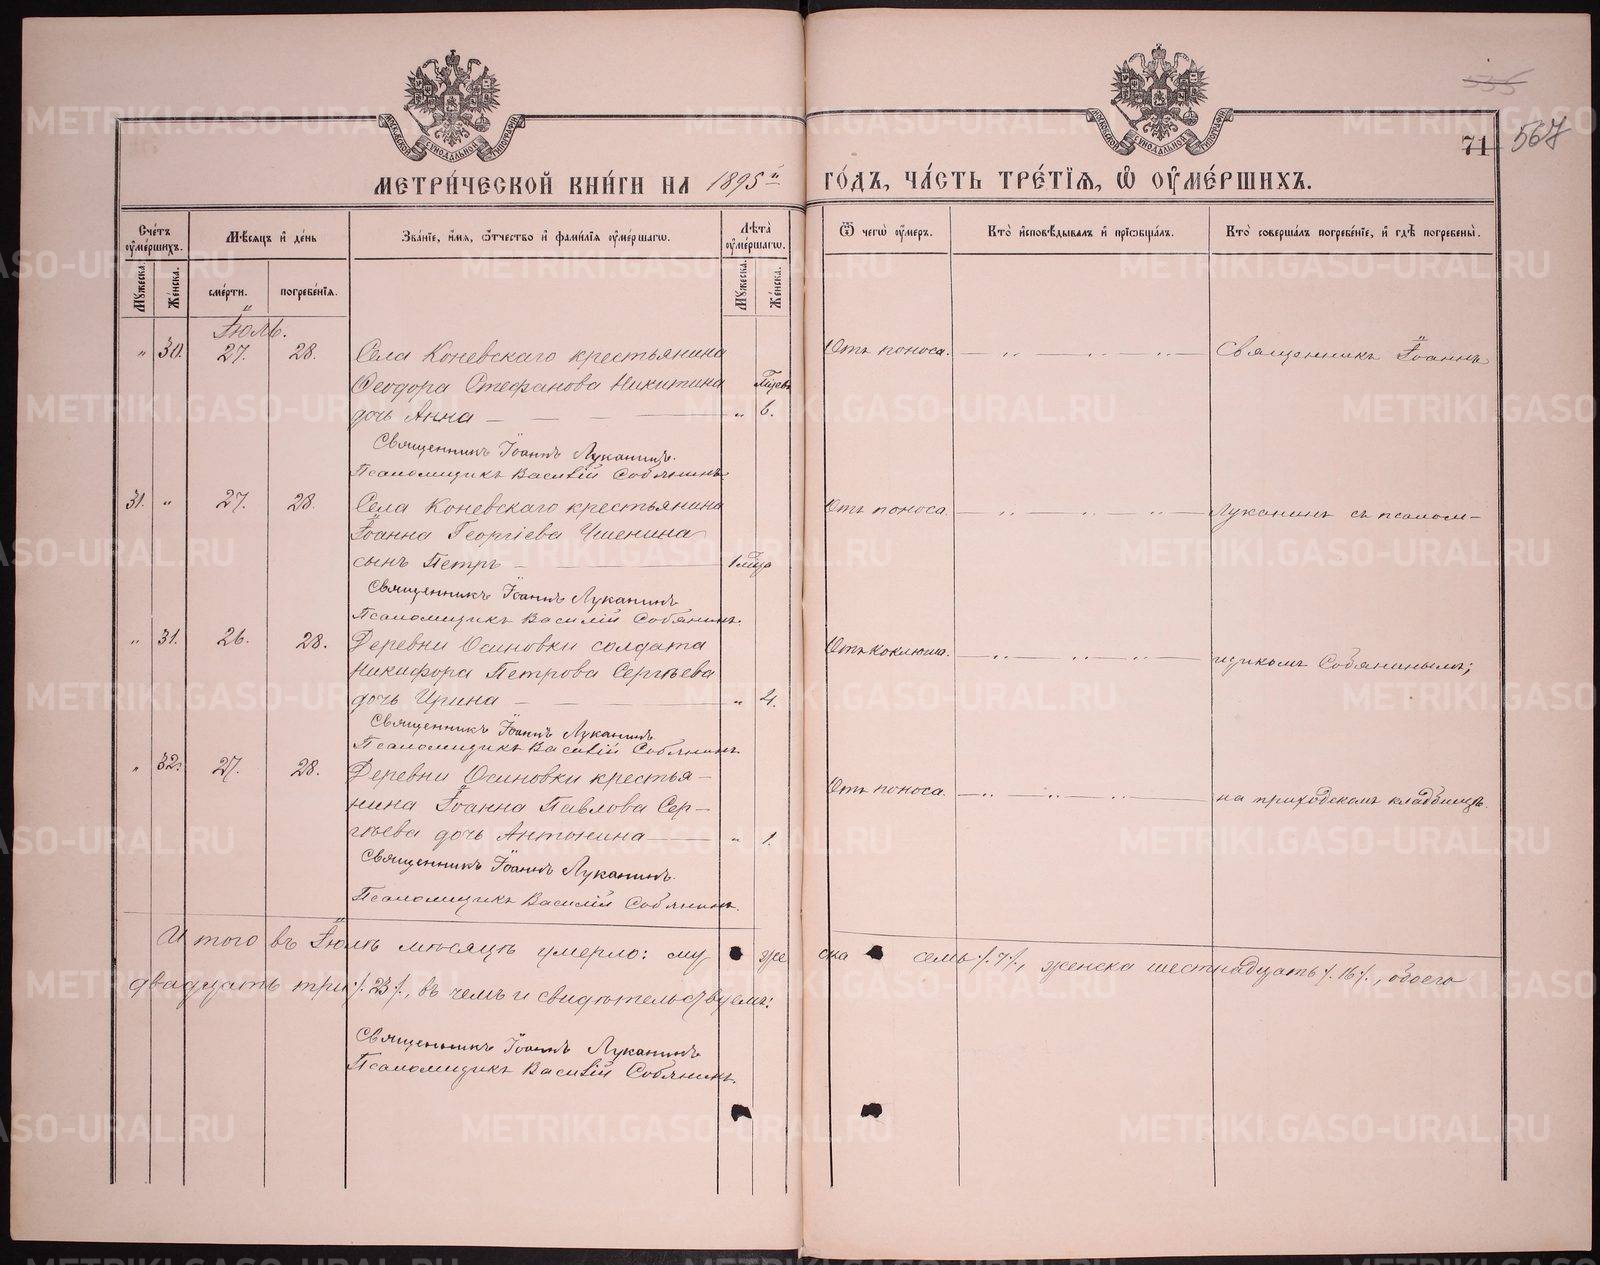 535
71 567
МЕТРИЧЕСКОЙ КНИГИ НА 1895й ГОДЪ, ЧАСТЬ ТРЕТІЯ, Ѿ ОУМЕРШИХЪ.
Счетъ оумершихъ.
Мѣсяцъ и день
Званіе, имя, ѿчество и фамилія оумершагѡ.
Лѣта оумершагѡ.
Ѿ чегѡ оумеръ.
Кто исповѣдывалъ и пріобщалъ.
Кто совершалъ погребеніе, и гдѣ погребены.
Мужеска.
Женска.
смерти.
погребенія.
Мужеска.
Женска.
Іюль.
" 30. 27. 28. Села Коневскаго крестьянина
Ѳеодора Стефанова Никитина
дочь Анна — — — " 6.
Отъ поноса. — „ — „ — „ — Священникъ Іоаннъ
Священникъ Іоаннъ Луканинъ.
Псаломщикъ Василій Собянинъ.
31. " 27. 28. Села Коневскаго крестьянина
Іоанна Георгіева Ушенина
сынъ Петръ — — — 1 мца
Отъ поноса — „ — „ — „ — Луканинъ съ псалом-
Священникъ Іоаннъ Луканинъ
Псаломщикъ Василій Собянинъ.
" 31. 26. 28. Деревни Осиновки солдата
Никифора Петрова Сергѣева
дочь Ирина — — — " 4.
Отъ коклюша. — „ — „ — „ — щикомъ Собянинымъ;
Священникъ Іоаннъ Луканинъ
Псаломщикъ Василій Собянинъ.
" 32. 27. 28. Деревни Осиновки крестья-
нина Іоанна Павлова Сер-
гѣева дочь Антонина — — " 1.
Отъ поноса. — „ — „ — „ — на приходскомъ кладбищѣ.
Священникъ Іоаннъ Луканинъ.
Псаломщикъ Василій Собянинъ.
Итого въ Іюлѣ мѣсяцѣ умерло: мужеска семь ./.7./., женска шестнадцать ./.16./., обоего
двадцать три ./.23./., въ чемъ и свидѣтельствуемъ:
Священникъ Іоаннъ Луканинъ
Псаломщикъ Василій Собянинъ.
METRIKI.GASO-URAL.RU